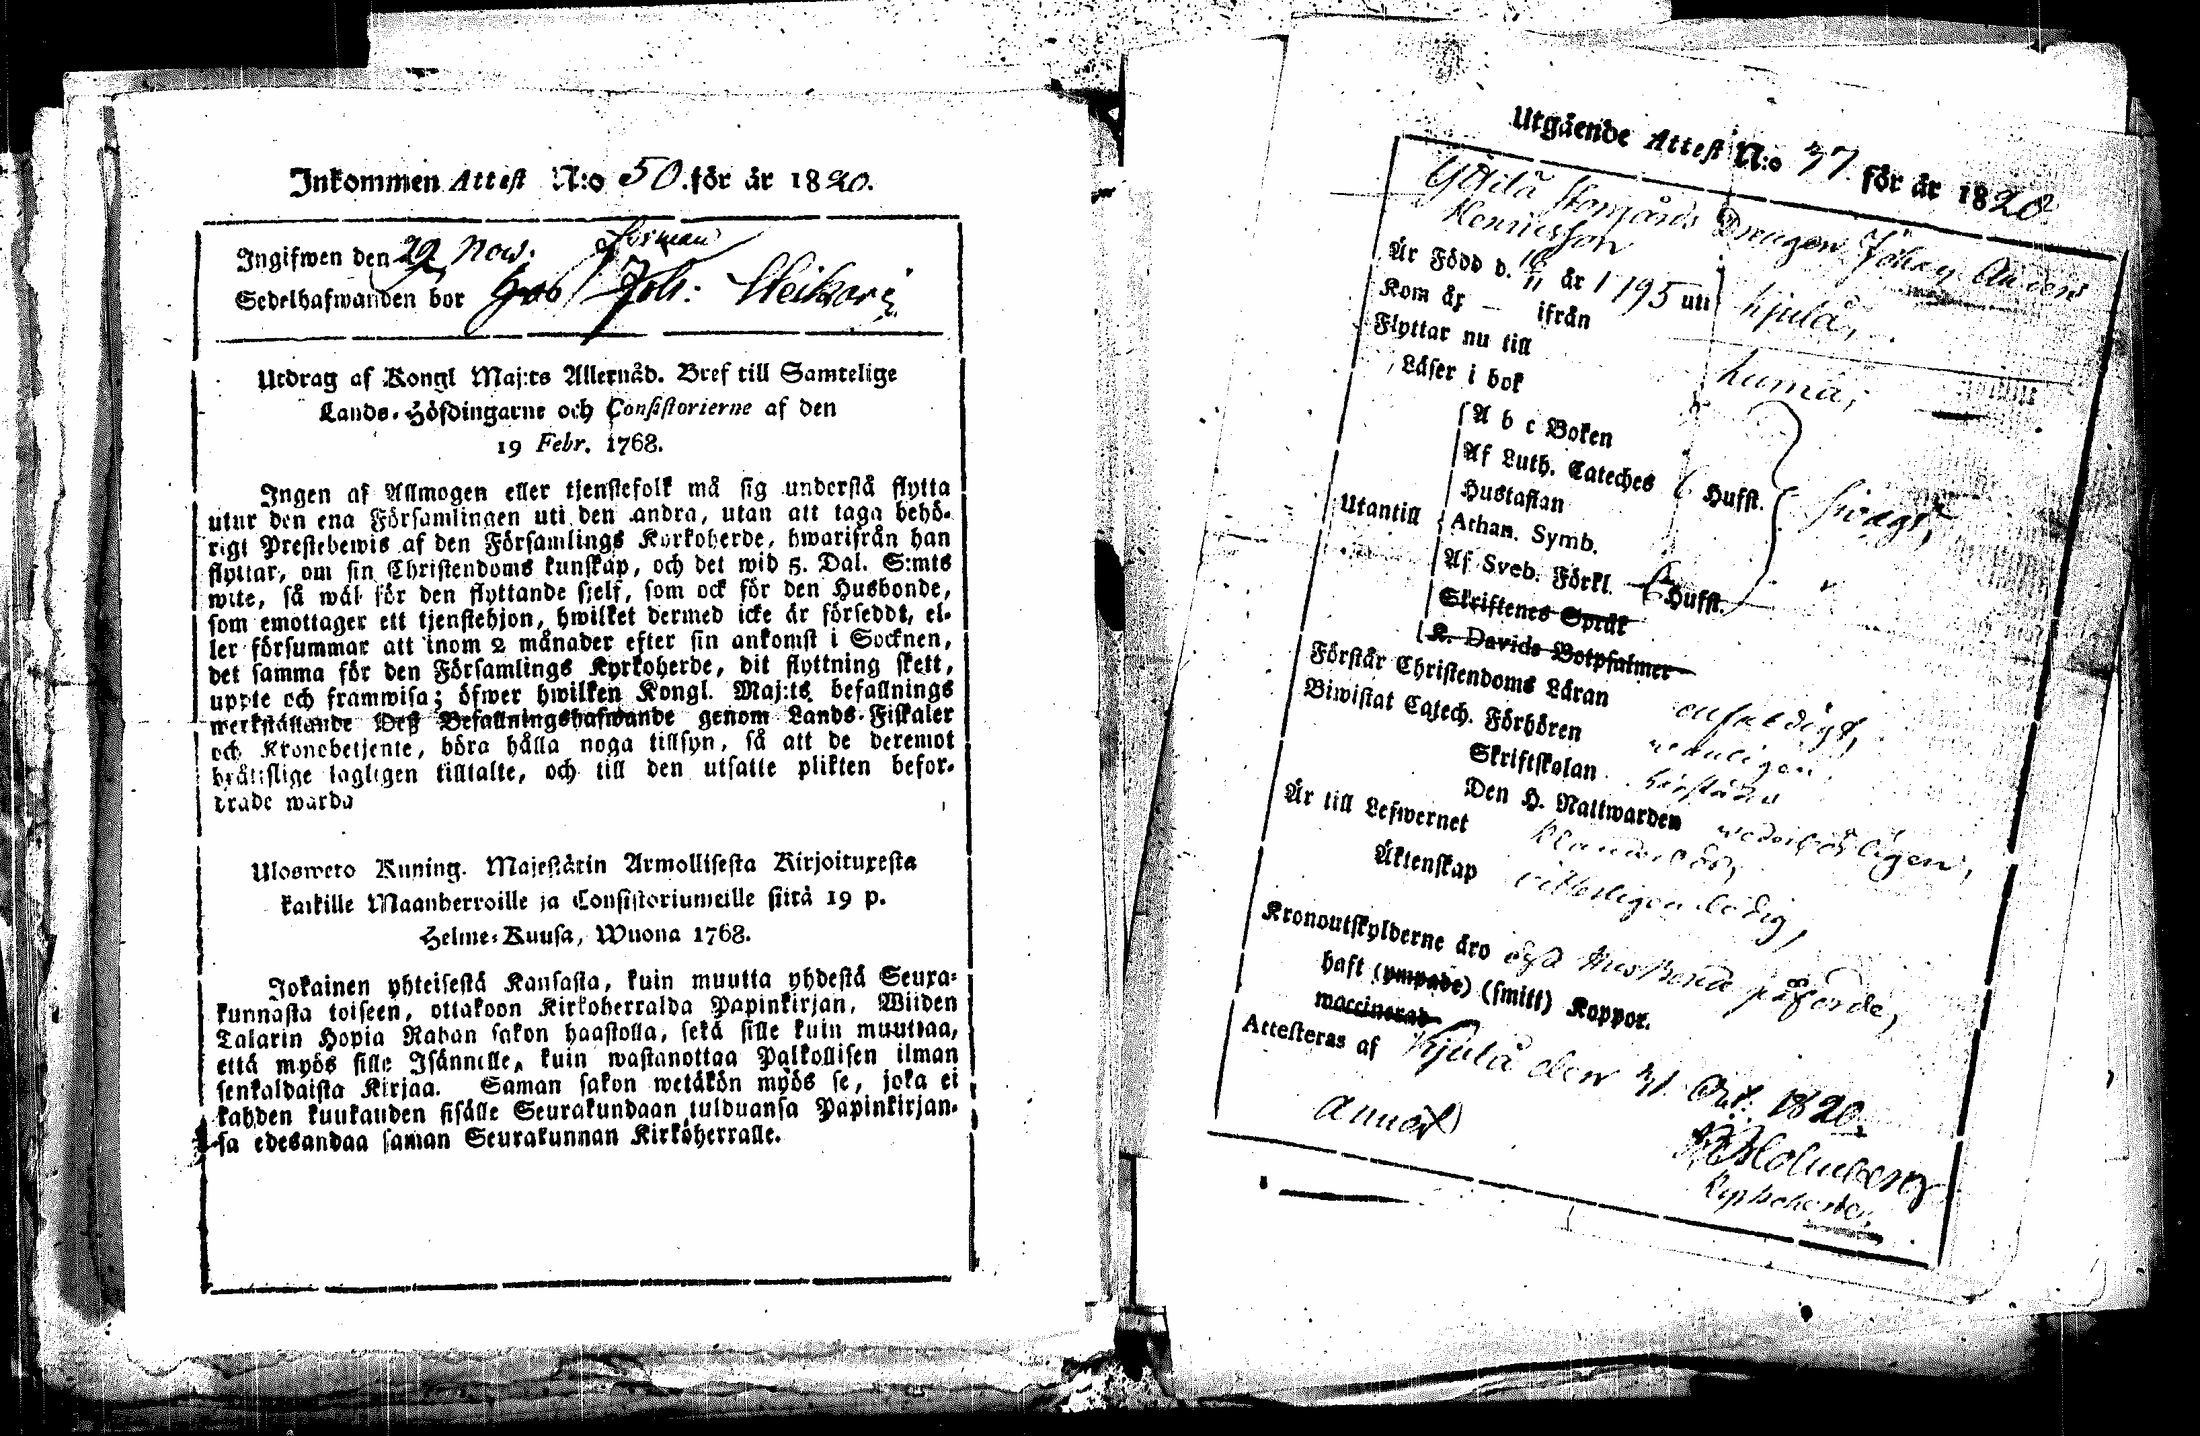 Inkommen Attest N:o 50. för år 1820.
Ingifwen den 29 Nov.
Sedelhafwanden bor hos Joh: Heikari
Utdrag af Kongl Maj:ts Allernåd. Bref till Samtelige
Lands-Höfdingarne och Consistorierne af den
19 Febr. 1768.
Ingen af Allmogen eller tjenstefolk må sig understå flytta
utur den ena Församlingen uti den andra, utan att taga behö-
rigt Prestebewis af den Församlings Kyrkoherde, hwarifrån han
flyttar, om sin Christendoms kunskap, och det wid 5. Dal. S:mts
wite, så wäl för den flyttande sjelf, som ock för den Husbonde,
som emottager ett tjenstehjon, hwilket dermed icke är försedt, el-
ler försummar att inom 2 månader efter sin ankomst i Socknen,
det samma för den Församlings Kyrkoherde, dit flyttning skett,
uppte och framwisa; öfwer hwilken Kongl. Maj:ts befallnings
werkställande Deß Befallningshafwande genom Lands-Fiskaler
och Kronobetjente, böra hålla noga tillsyn, så att de deremot
bräckslige lagligen tilltalte, och till den utsatte plikten befor-
drade warda
Ulosweto Kuning. Majestätin Armollisesta Kirjoituxesta
kaikille Maanherroille ja Consistoriumeille siitä 19 p.
Helme-Kuusa, Wuona 1768.
Jokainen yhteisestä Kansasta, kuin muutta yhdestä Seura-
kunnasta toiseen, ottakoon Kirkoherralda Papinkirjan, Wiiden
Talarin Hopia Rahan sakon haastolla, sekä sille kuin muuttaa,
että myös sille Isännelle, kuin wastanottaa Palkollisen ilman
senkaldaista Kirjaa. Saman sakon wetäkön myös se, joka ei
kahden kuukauden sisälle Seurakundaan tulduansa Papinkirjan-
sa edesandaa saman Seurakunnan Kirkoherralle.
Utgående Attest N:o 37. för år 1820
Dragon Johan Anders
Är Född d. 16/11 år 1795 uti Kjulå,
Kom åx – ifrån
Flyttar nu till
Läser i bok
Utantill
A b c Boken
Af Luth. Cateches Hufst.
Hustaflan
Athan. Symb.
Af Sveb. Förkl. Hufst.
Skriftenes Språk
K. Davids Botpsalmer
Förstår Christendoms Läran enfaldigt,
Biwistat Catech. Förhören
Skriftskolan
Den H. Nattwarden
Är till Lefwernet
Äktenskap witterligen ledig,
Kronoutskylderne äro
haft (ympade) (smitt) Koppor.
waccinerad
Attesteras af Kjulå den 31. Oct. 1820.
Holmberg